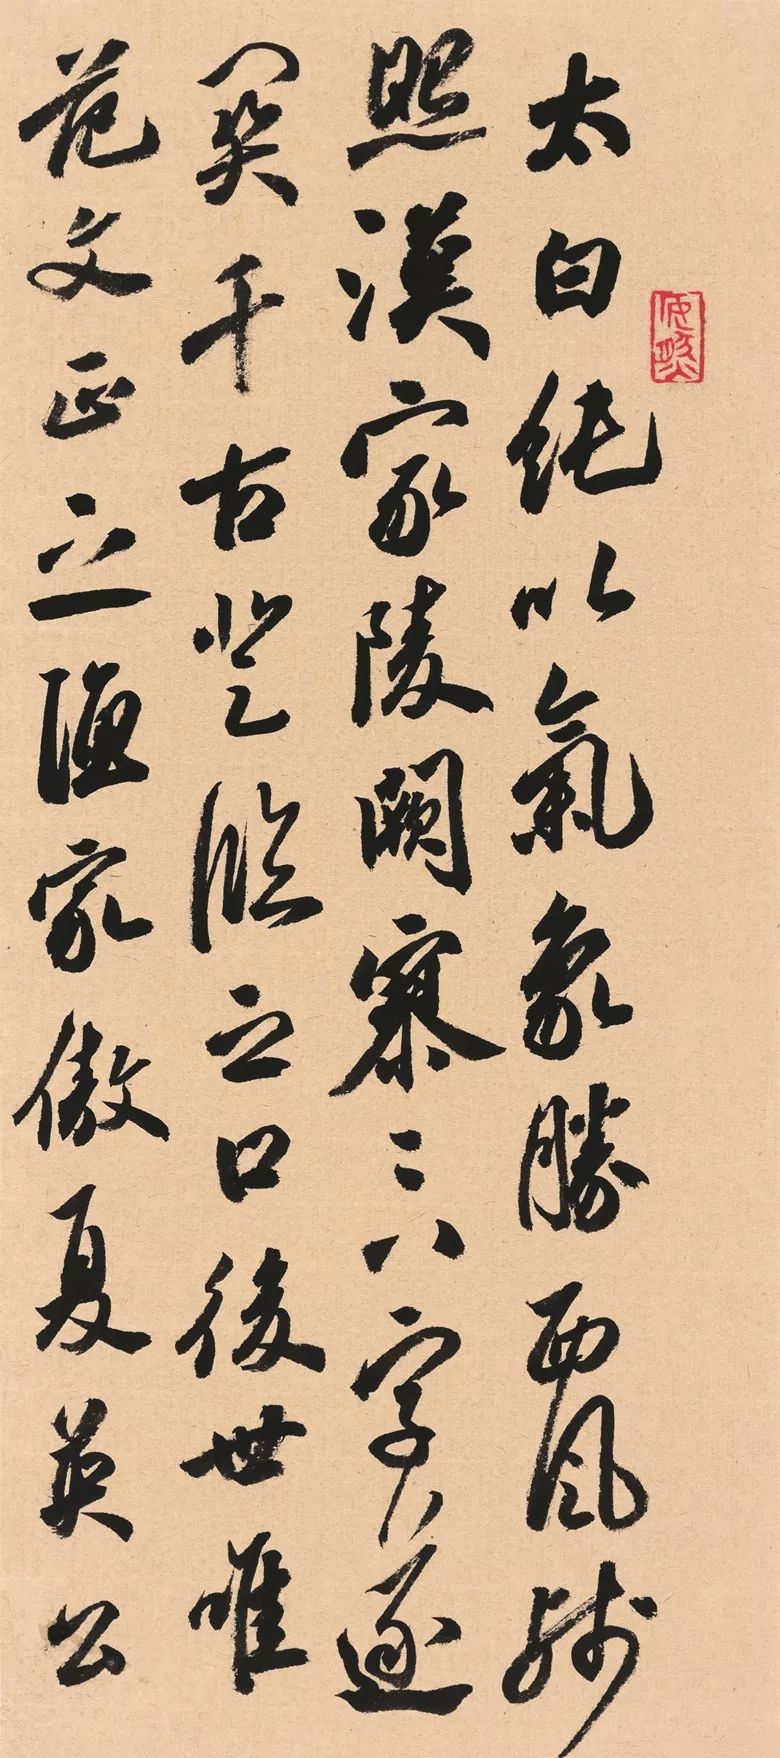 太白純以氣象勝西風殘
照漢家陵闕寥〻八字遂
關千古登臨之口後世唯
范文正之漁家傲夏英公